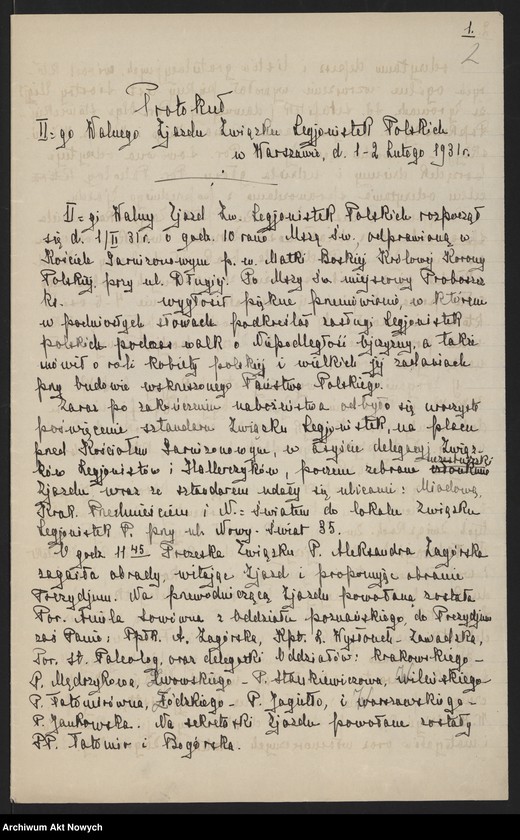 1.
2
Protokuł
II=go Walnego Zjazdu Związku Legjonistek Polskich
w Warszawie, d. 1-2 lutego 1931 r.
II=gi Walny Zjazd Zw. Legjonistek Polskich rozpoczął
się d. 1/II 31 r. o godz. 10 rano Mszą Św., odprawioną w
Kościele Garnizonowym p. w. Matki Boskiej Królowej Korony
Polskiej, przy ul. Długiej. Po Mszy Św. miejscowy Proboszcz
ks. wygłosił piękne przemówienie, w którem
w podniosłych słowach podkreślał zasługi Legjonistek
polskich podczas walk o Niepodległość Ojczyzny, a także
mówił o roli kobiety polskiej i wielkich jej zasługach
przy budowie wskrzeszonego Państwa Polskiego.
Zaraz po zakończeniu nabożeństwa odbyło się uroczyste
poświęcenie sztandaru Związku Legjonistek, na placu
przed Kościołem Garnizonowym, w asyście delegacji Związ-
ków Legjonistów i Hallerczyków, poczem zebrane uczestniczki
Zjazdu wraz ze sztandarem udały się ulicami: Miodową,
Krak. Przedmieściem i N.=Światem do lokalu Związku
Legjonistek P. przy ul. Nowy-Świat 35.
O godz. 11 45 Prezeska Związku P. Aleksandra Zagórska
zagaiła obrady, witając Zjazd i proponując obranie
Prezydjum. Na przewodniczącą Zjazdu powołaną została
Por. Aniela z oddziału poznańskiego, do Prezydjum
zaś Panie: Ppłk. A. Zagórska, Kpt. R. Wysłouch-Zawadzka,
Por. St. Paleolog, oraz delegatki Oddziałów: krakowskiego -
P. Mędrzykowa, Lwowskiego - P. Stankiewiczowa, Wileńskiego
P. Fatomirówna, Łódzkiego - P. Jagiełło, i Warszawskiego -
P. Jankowska. Na sekretarki Zjazdu powołane zostały
PP. Tatomir i Bogórska.
Archiwum Akt Nowych